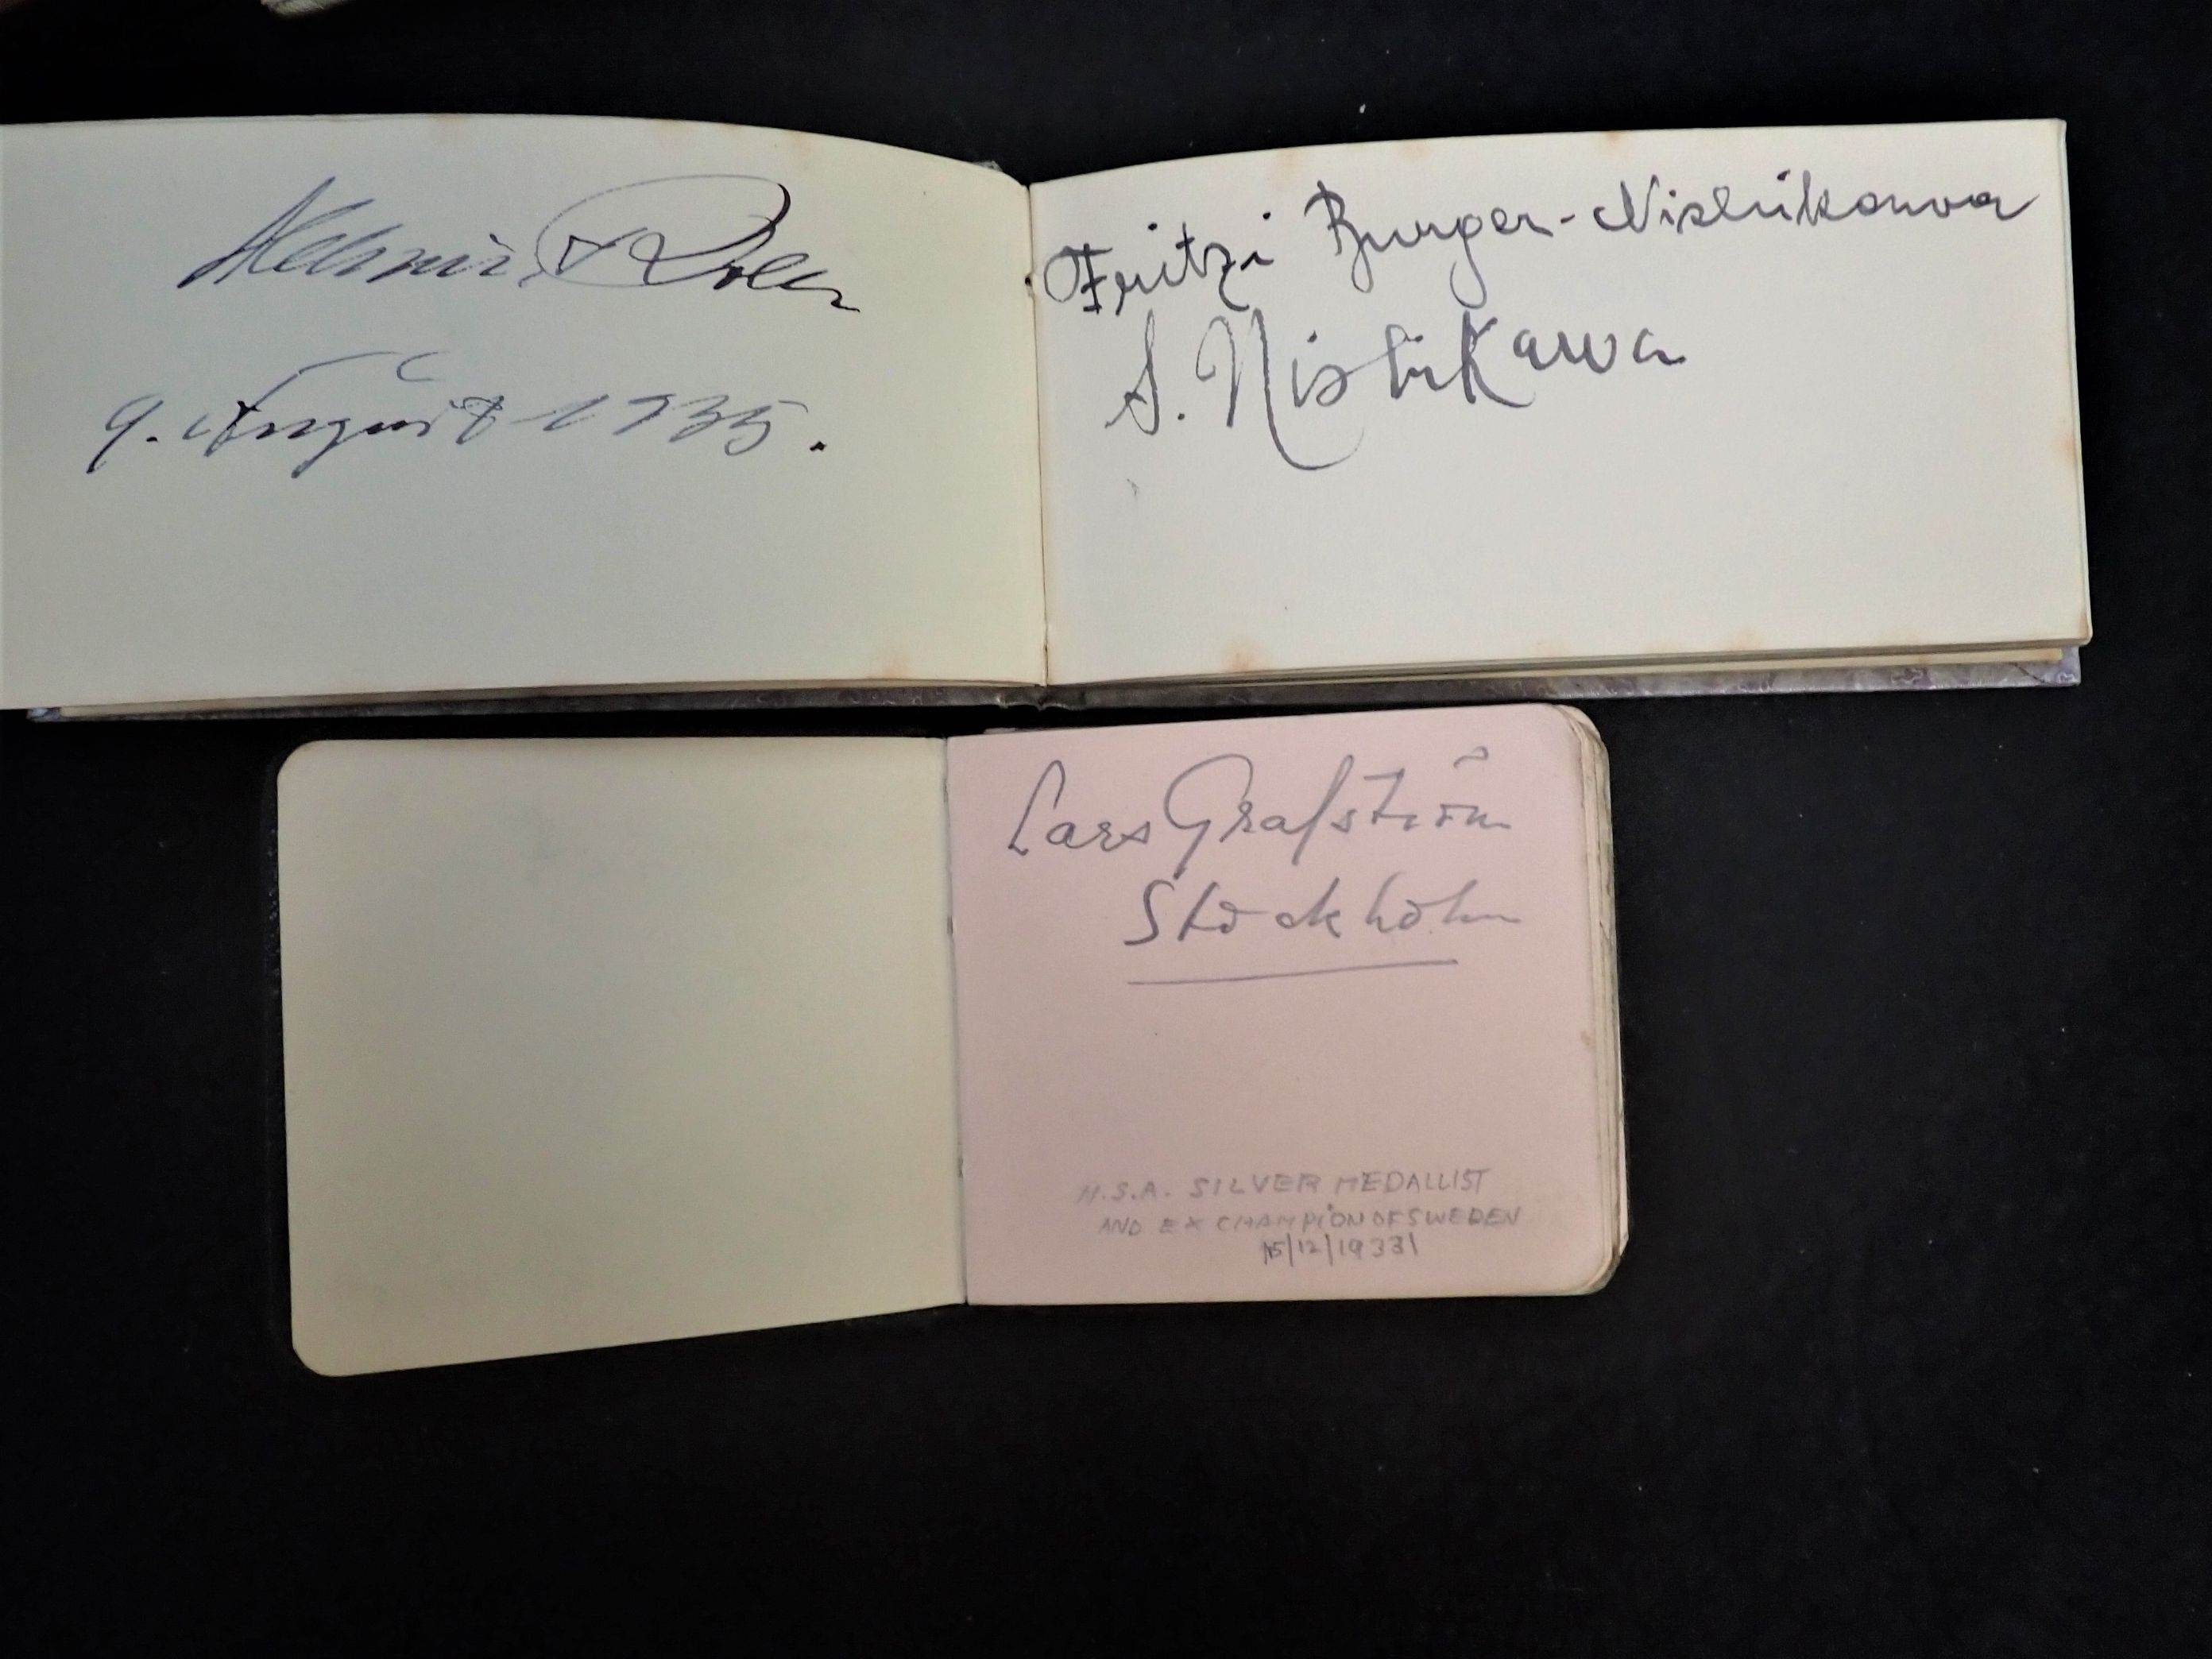 9. August 1935.
Fritzi Burger-Nishikawa
S. Nishikawa
Lars Grafström
Stockholm
N.S.A. SILVER MEDALLIST
AND EX CHAMPION OF SWEDEN
15/12/1933